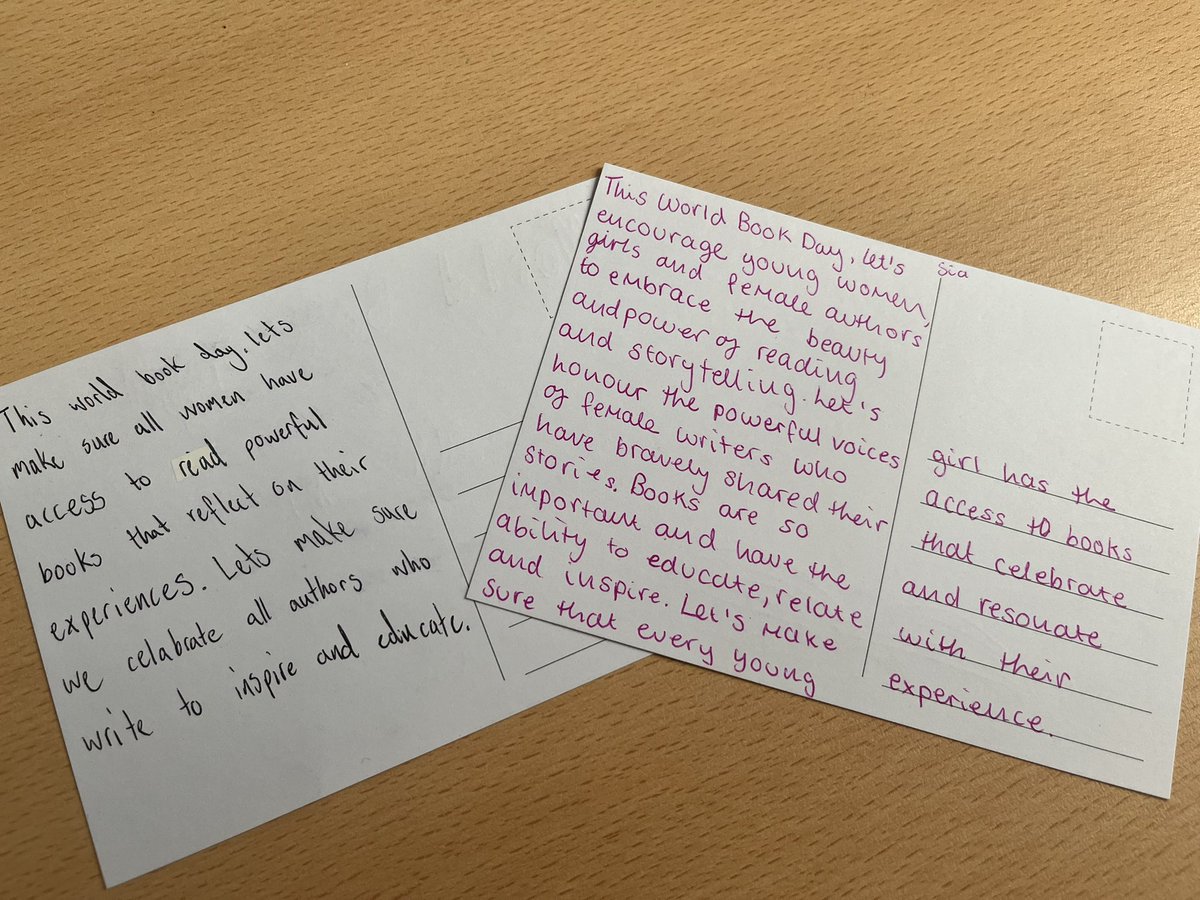 This world book day, lets
make sure all women have
access to read powerful
books that reflect on their
experiences. Lets make sure
we celabrate all authors who
write to inspire and educate.
This World Book Day, let's
encourage young women,
girls and female authors
to embrace the beauty
and power of reading
and storytelling. Let's
honour the powerful voices
of female writers who
have bravely shared their
stories. Books are so
important and have the
ability to educate, relate
and inspire. Let's make
sure that every young
sia
girl has the
access to books
that celebrate
and resonate
with their
experience.